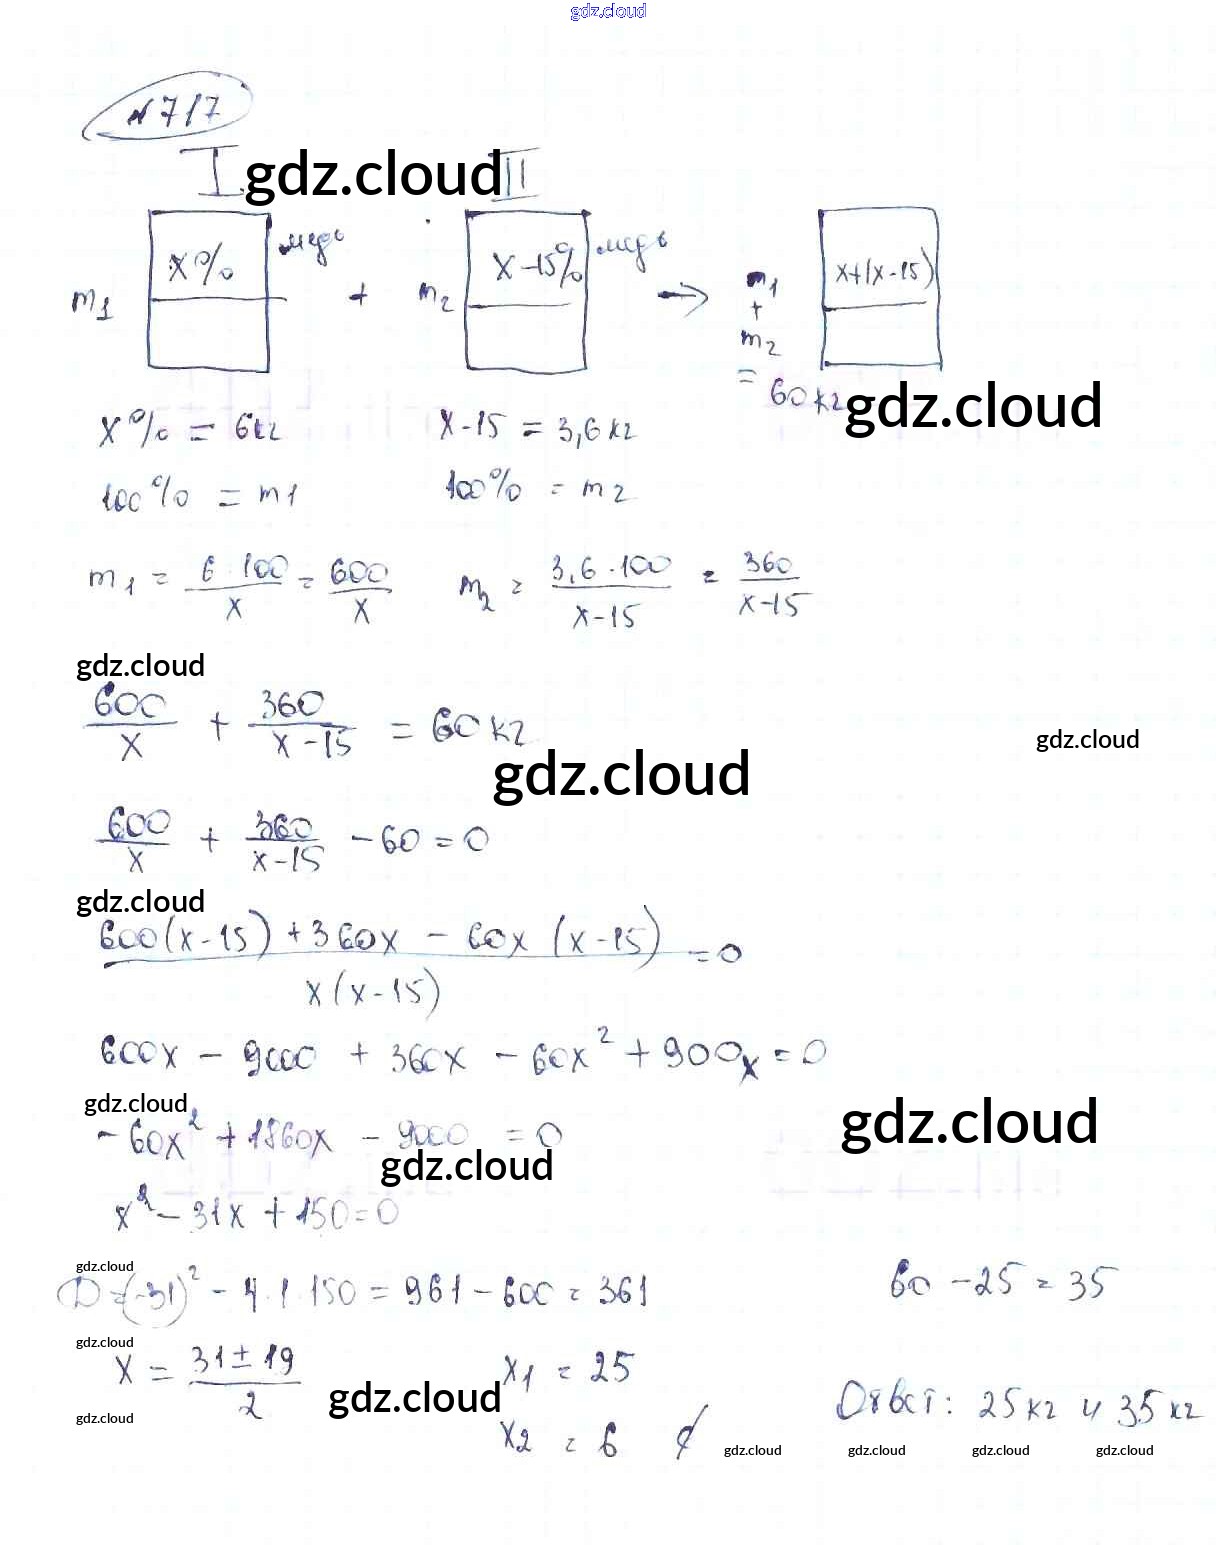 gdz.cloud
№717
I gdz.cloud II
x% медь x-15% медь x+(x-15)
m1 + m2 → m1 + m2 = 60кг
gdz.cloud
x% = 6кг x-15 = 3,6кг
100% = m1 100% = m2
m1 = 6·100/x = 600/x m2 = 3,6·100/x-15 = 360/x-15
gdz.cloud
600/x + 360/x-15 = 60кг
gdz.cloud
gdz.cloud
600/x + 360/x-15 - 60 = 0
gdz.cloud
600(x-15)+360x - 60x(x-15)/x(x-15) = 0
600x - 9000 + 360x - 60x² + 900x = 0
gdz.cloud
gdz.cloud
-60x² + 1860x - 9000 = 0
gdz.cloud
x² - 31x + 150 = 0
gdz.cloud
D = (-31)² - 4·1·150 = 961 - 600 = 361
60 - 25 = 35
gdz.cloud
x = 31±19/2 x1 = 25
gdz.cloud
Ответ: 25кг и 35кг
gdz.cloud
x2 = 6
gdz.cloud gdz.cloud gdz.cloud gdz.cloud